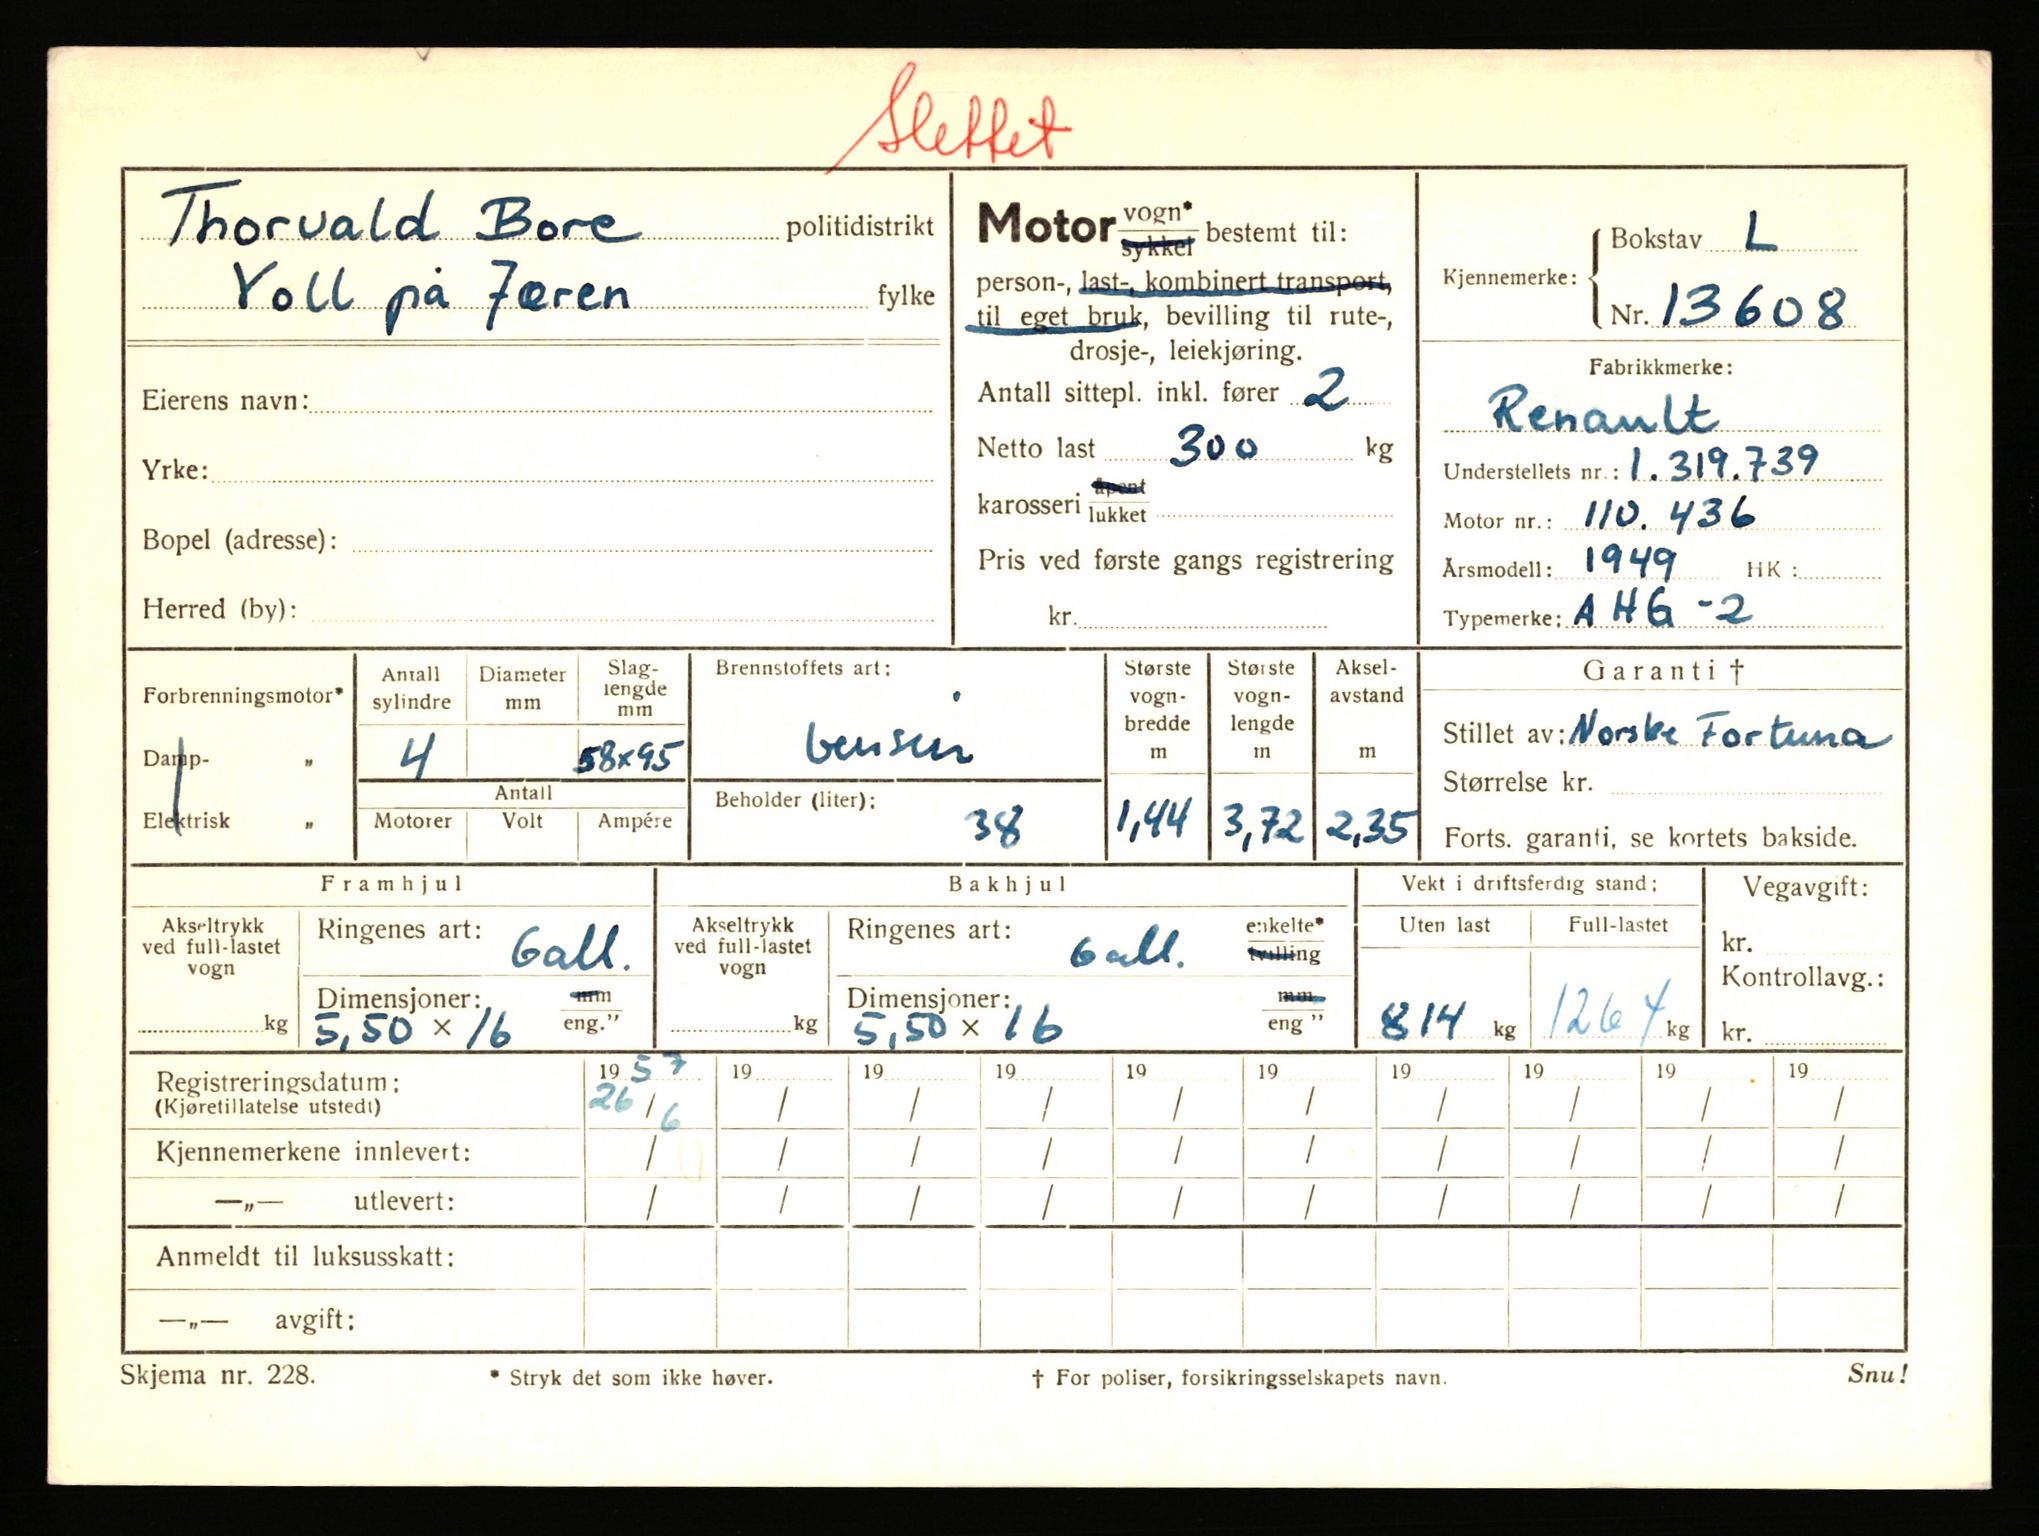 Slettet
Thorvald Bore politidistrikt
Voll på Jæren fylke
Eierens navn:
Yrke:
Bopel (adresse):
Herred (by):
Motor vogn* sykkel bestemt til:
person-, last-, kombinert transport,
til eget bruk, bevilling til rute-,
drosje-, leiekjøring.
Antall sittepl. inkl. fører 2
Netto last 300 kg
karosseri åpent lukket
Pris ved første gangs registrering
kr.
Kjennemerke: Bokstav L
Nr. 13608
Fabrikkmerke:
Renault
Understellets nr.: 1.319.739
Motor nr.: 110.436
Årsmodell: 1949 HK:
Typemerke: AHG-2
Forbrenningsmotor*
Damp- „
Elektrisk „
Antall sylindre
Diameter mm
Slag-lengde mm
4 58x95
Antall
Motorer Volt Ampére
Brennstoffets art:
bensin
Beholder (liter):
38
Største vogn-bredde m
1,44
Største vogn-lengde m
3,72
Aksel-avstand m
2,35
Garanti †
Stillet av: Norske Fortuna
Størrelse kr.
Forts. garanti, se kortets bakside.
Framhjul
Akseltrykk ved full-lastet vogn
kg
Ringenes art: Gall.
Dimensjoner: mm
5,50 × 16 eng."
Bakhjul
Akseltrykk ved full-lastet vogn
kg
Ringenes art: Gall. enkelte* tvilling
Dimensjoner: mm
5,50 × 16 eng "
Vekt i driftsferdig stand:
Uten last Full-lastet
814 kg 1264 kg
Vegavgift:
kr.
Kontrollavg.:
kr.
Registreringsdatum: 1957 19 19 19 19 19 19 19 19 19
(Kjøretillatelse utstedt) 26/6 / / / / / / / / /
Kjennemerkene innlevert: / / / / / / / / / /
—„— utlevert: / / / / / / / / / /
Anmeldt til luksusskatt:
—„— avgift:
Skjema nr. 228. * Stryk det som ikke høver. † For poliser, forsikringsselskapets navn. Snu!